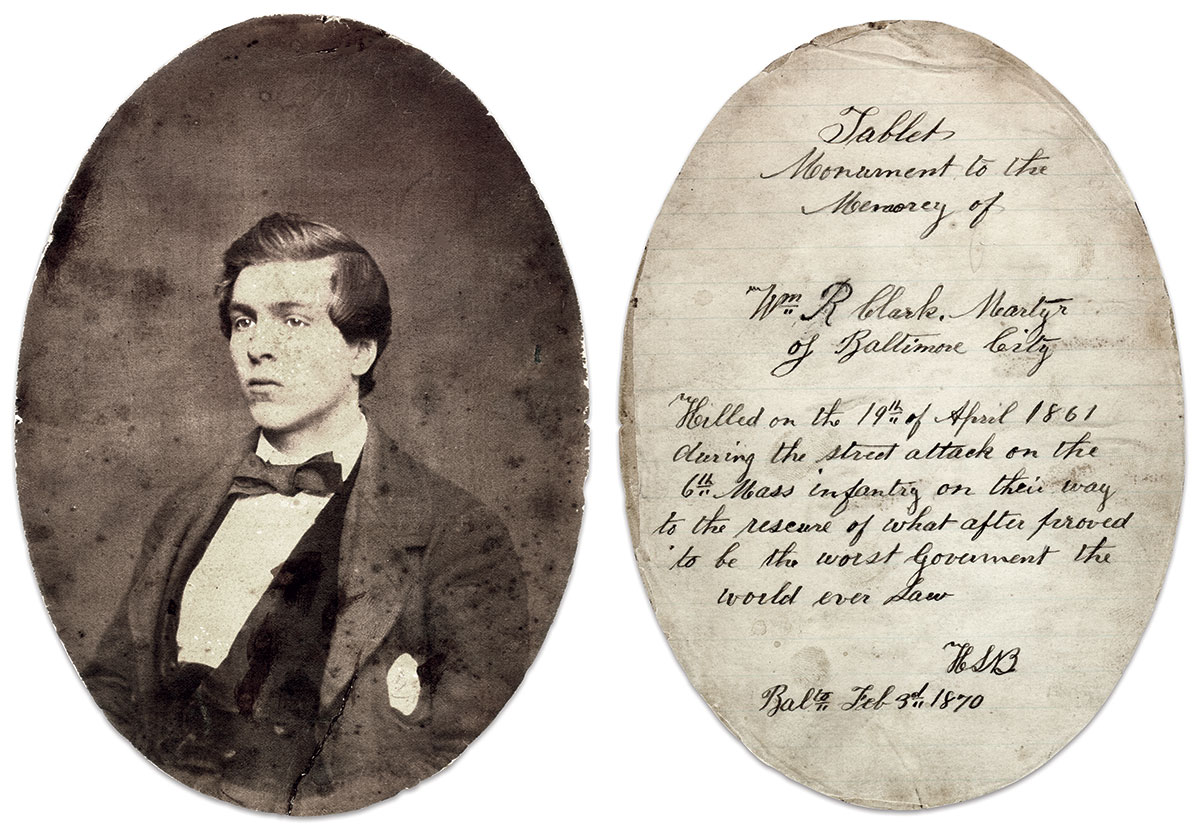 Tablet
Monument to the
Memorey of
Wm R Clark. Martyr
of Baltimore City
Killed on the 19th of April 1861
during the street attack on the
6th Mass infantry on their way
to the rescure of what after proved
to be the worst Goverment the
world ever saw
HSB
Balto Feb 3d 1870